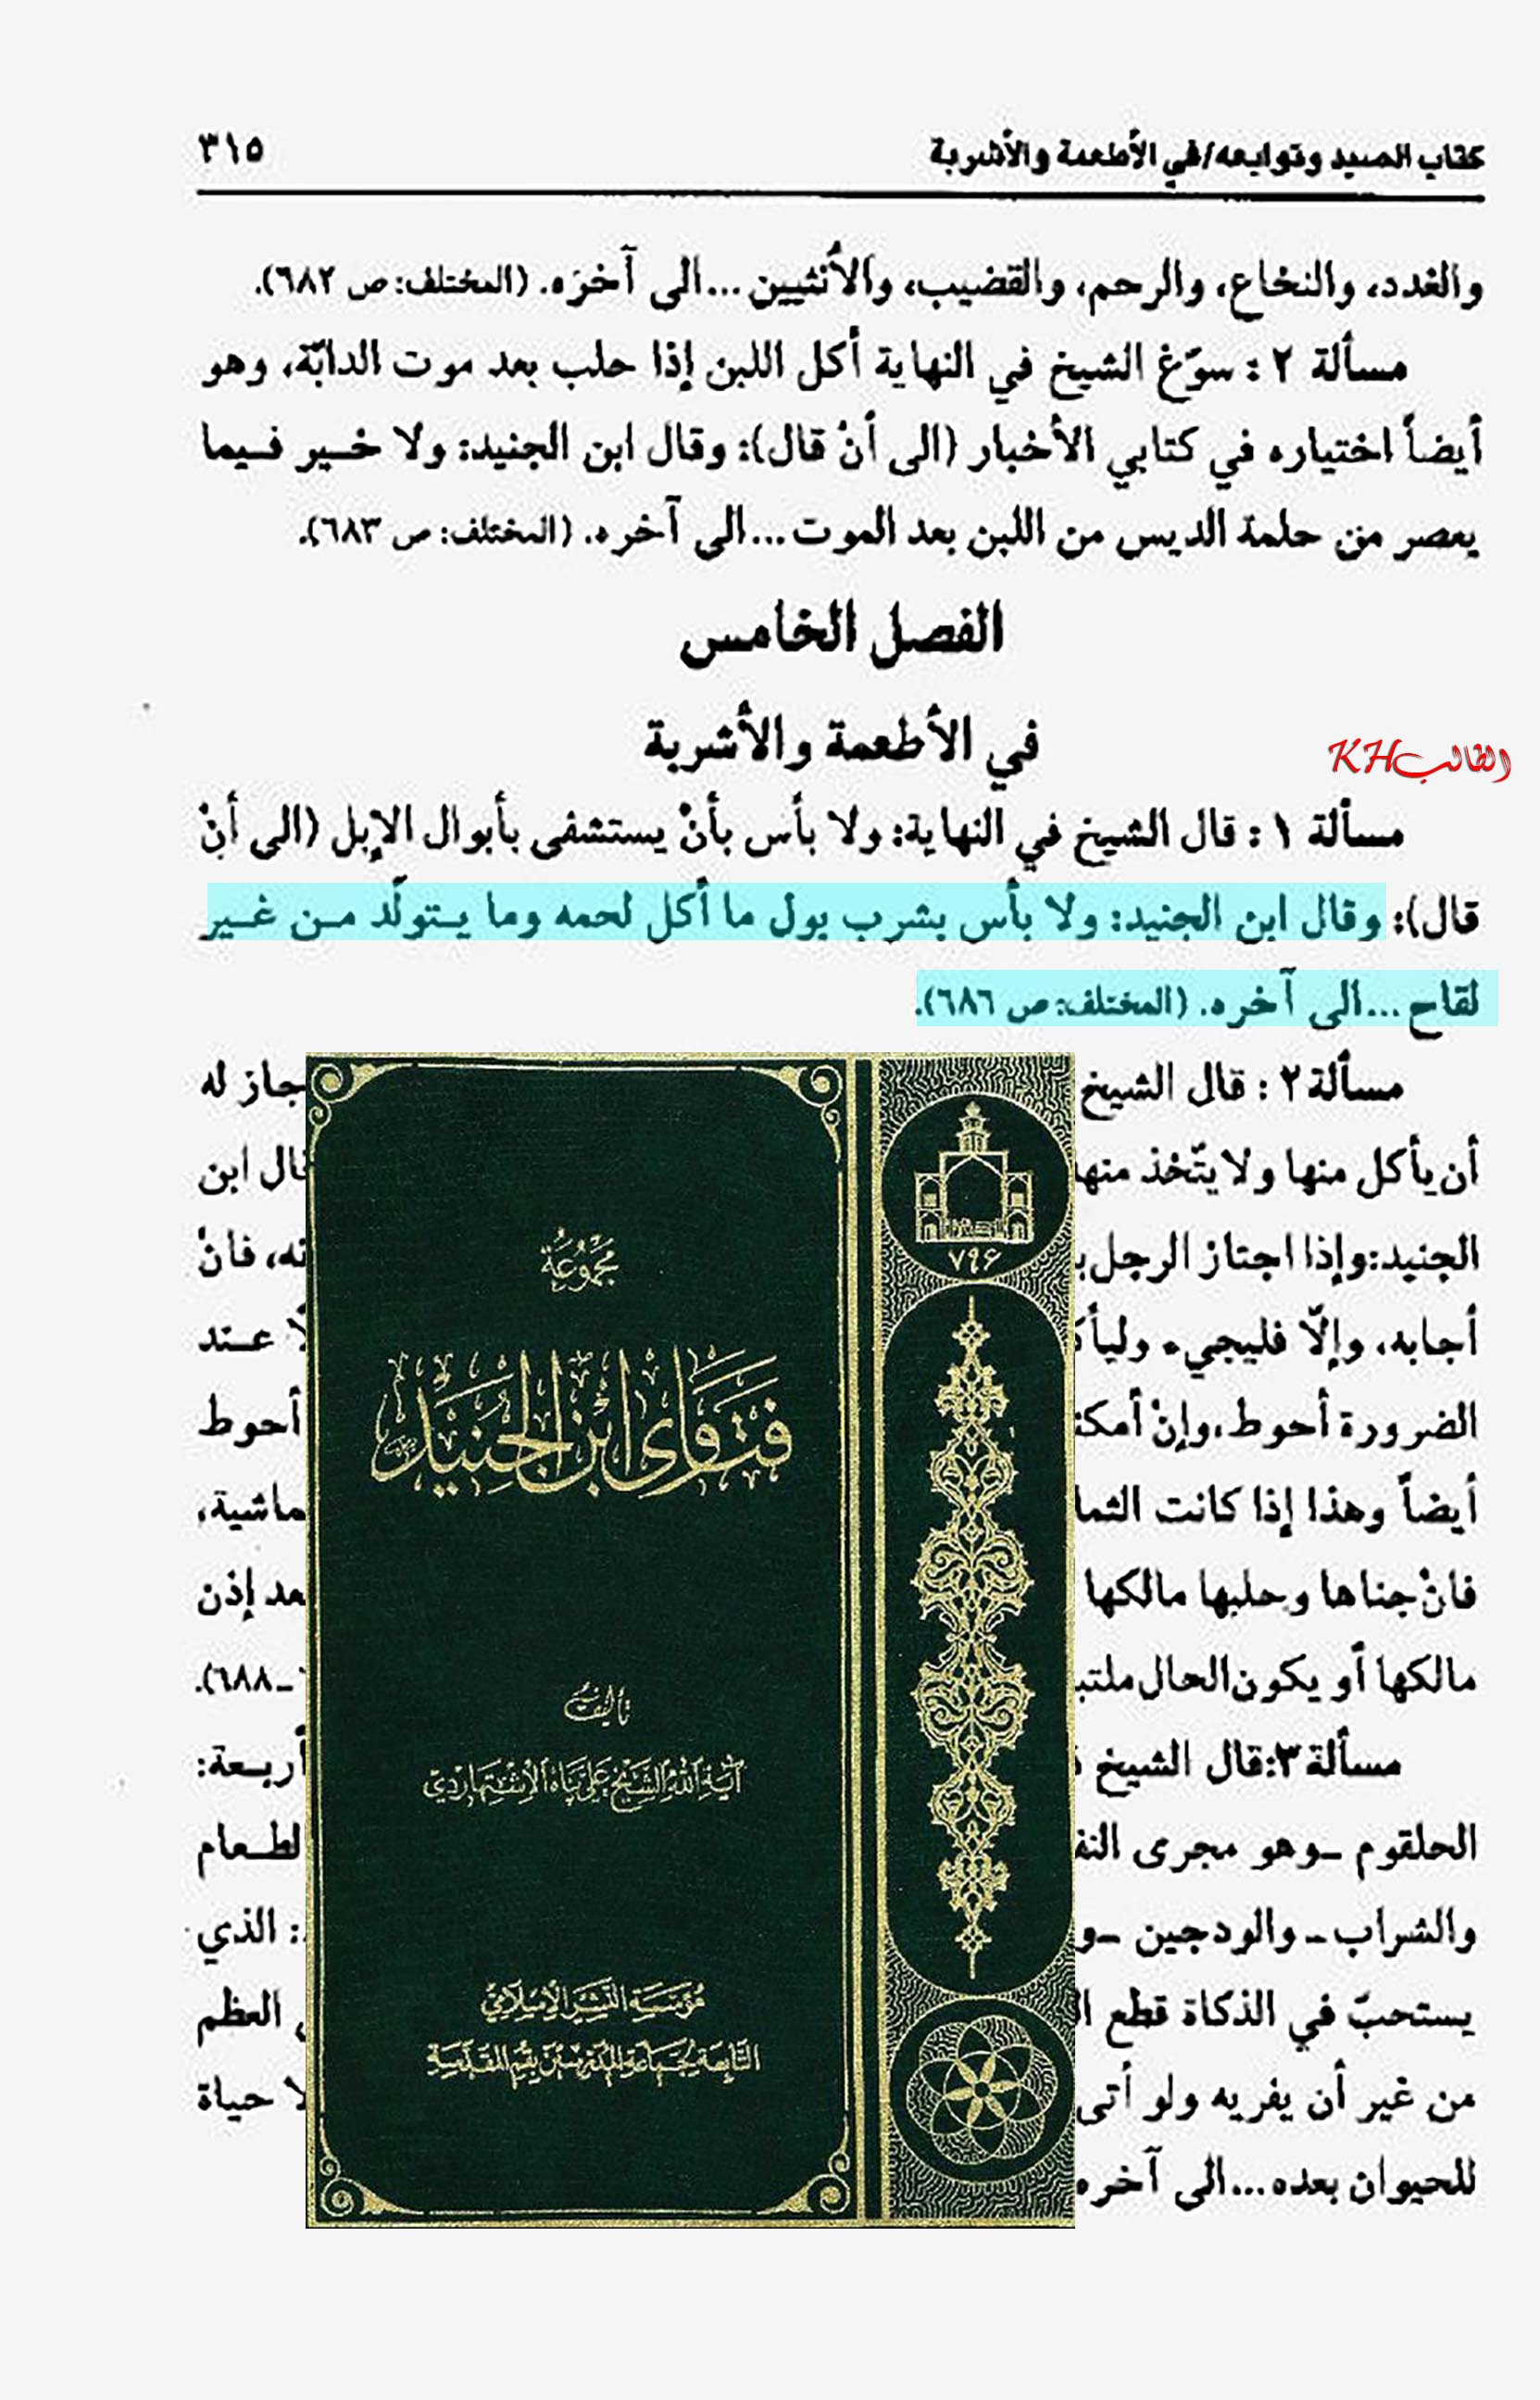 كتاب الصيد وتوابعه/في الأطعمة والأشربة ٣١٥
والغدد، والنخاع، والرحم، والقضيب، والأنثيين...الى آخره. (المختلف: ص ٦٨٢).
مسألة ٢ : سوّغ الشيخ في النهاية أكل اللبن إذا حلب بعد موت الدابّة، وهو
أيضاً اختياره في كتابي الأخبار (الى أنْ قال): وقال ابن الجنيد: ولا خير فيما
يعصر من حلمة الديس من اللبن بعد الموت...الى آخره. (المختلف: ص ٦٨٣).
الفصل الخامس
في الأطعمة والأشربة
الطالب KH
مسألة ١ : قال الشيخ في النهاية: ولا بأس بأنْ يستشفى بأبوال الإبل (الى أنْ
قال): وقال ابن الجنيد: ولا بأس بشرب بول ما أكل لحمه وما يتولّد من غير
لقاح...الى آخره. (المختلف: ص ٦٨٦).
مسألة ٢ : قال الشيخ جاز له
أن يأكل منها ولا يتّخذ منها قال ابن
الجنيد: وإذا اجتاز الرجل فانْ
أجابه، وإلّا فليجيء عند
الضرورة أحوط، وإنْ أحوط
أيضاً وهذا إذا كانت ماشية،
فانْ جناها وحلبها مالكها إذن
مالكها أو يكون الحال ٦٨٨).
مسألة ٣: قال الشيخ أربعة:
الحلقوم ـ وهو مجرى
والشراب ـ والودجين ـ الذي
يستحبّ في الذكاة قطع العظم
من غير أن يفريه ولو أتى حياة
للحيوان بعده...الى آخره
٧٩۶
مجموعة
فتاوى ابن الجنيد
تأليف
آية الله الشيخ علي پناه الإشتهاردي
مؤسسة النشر الإسلامي
التابعة لجماعة المدرسين بقم المقدسة